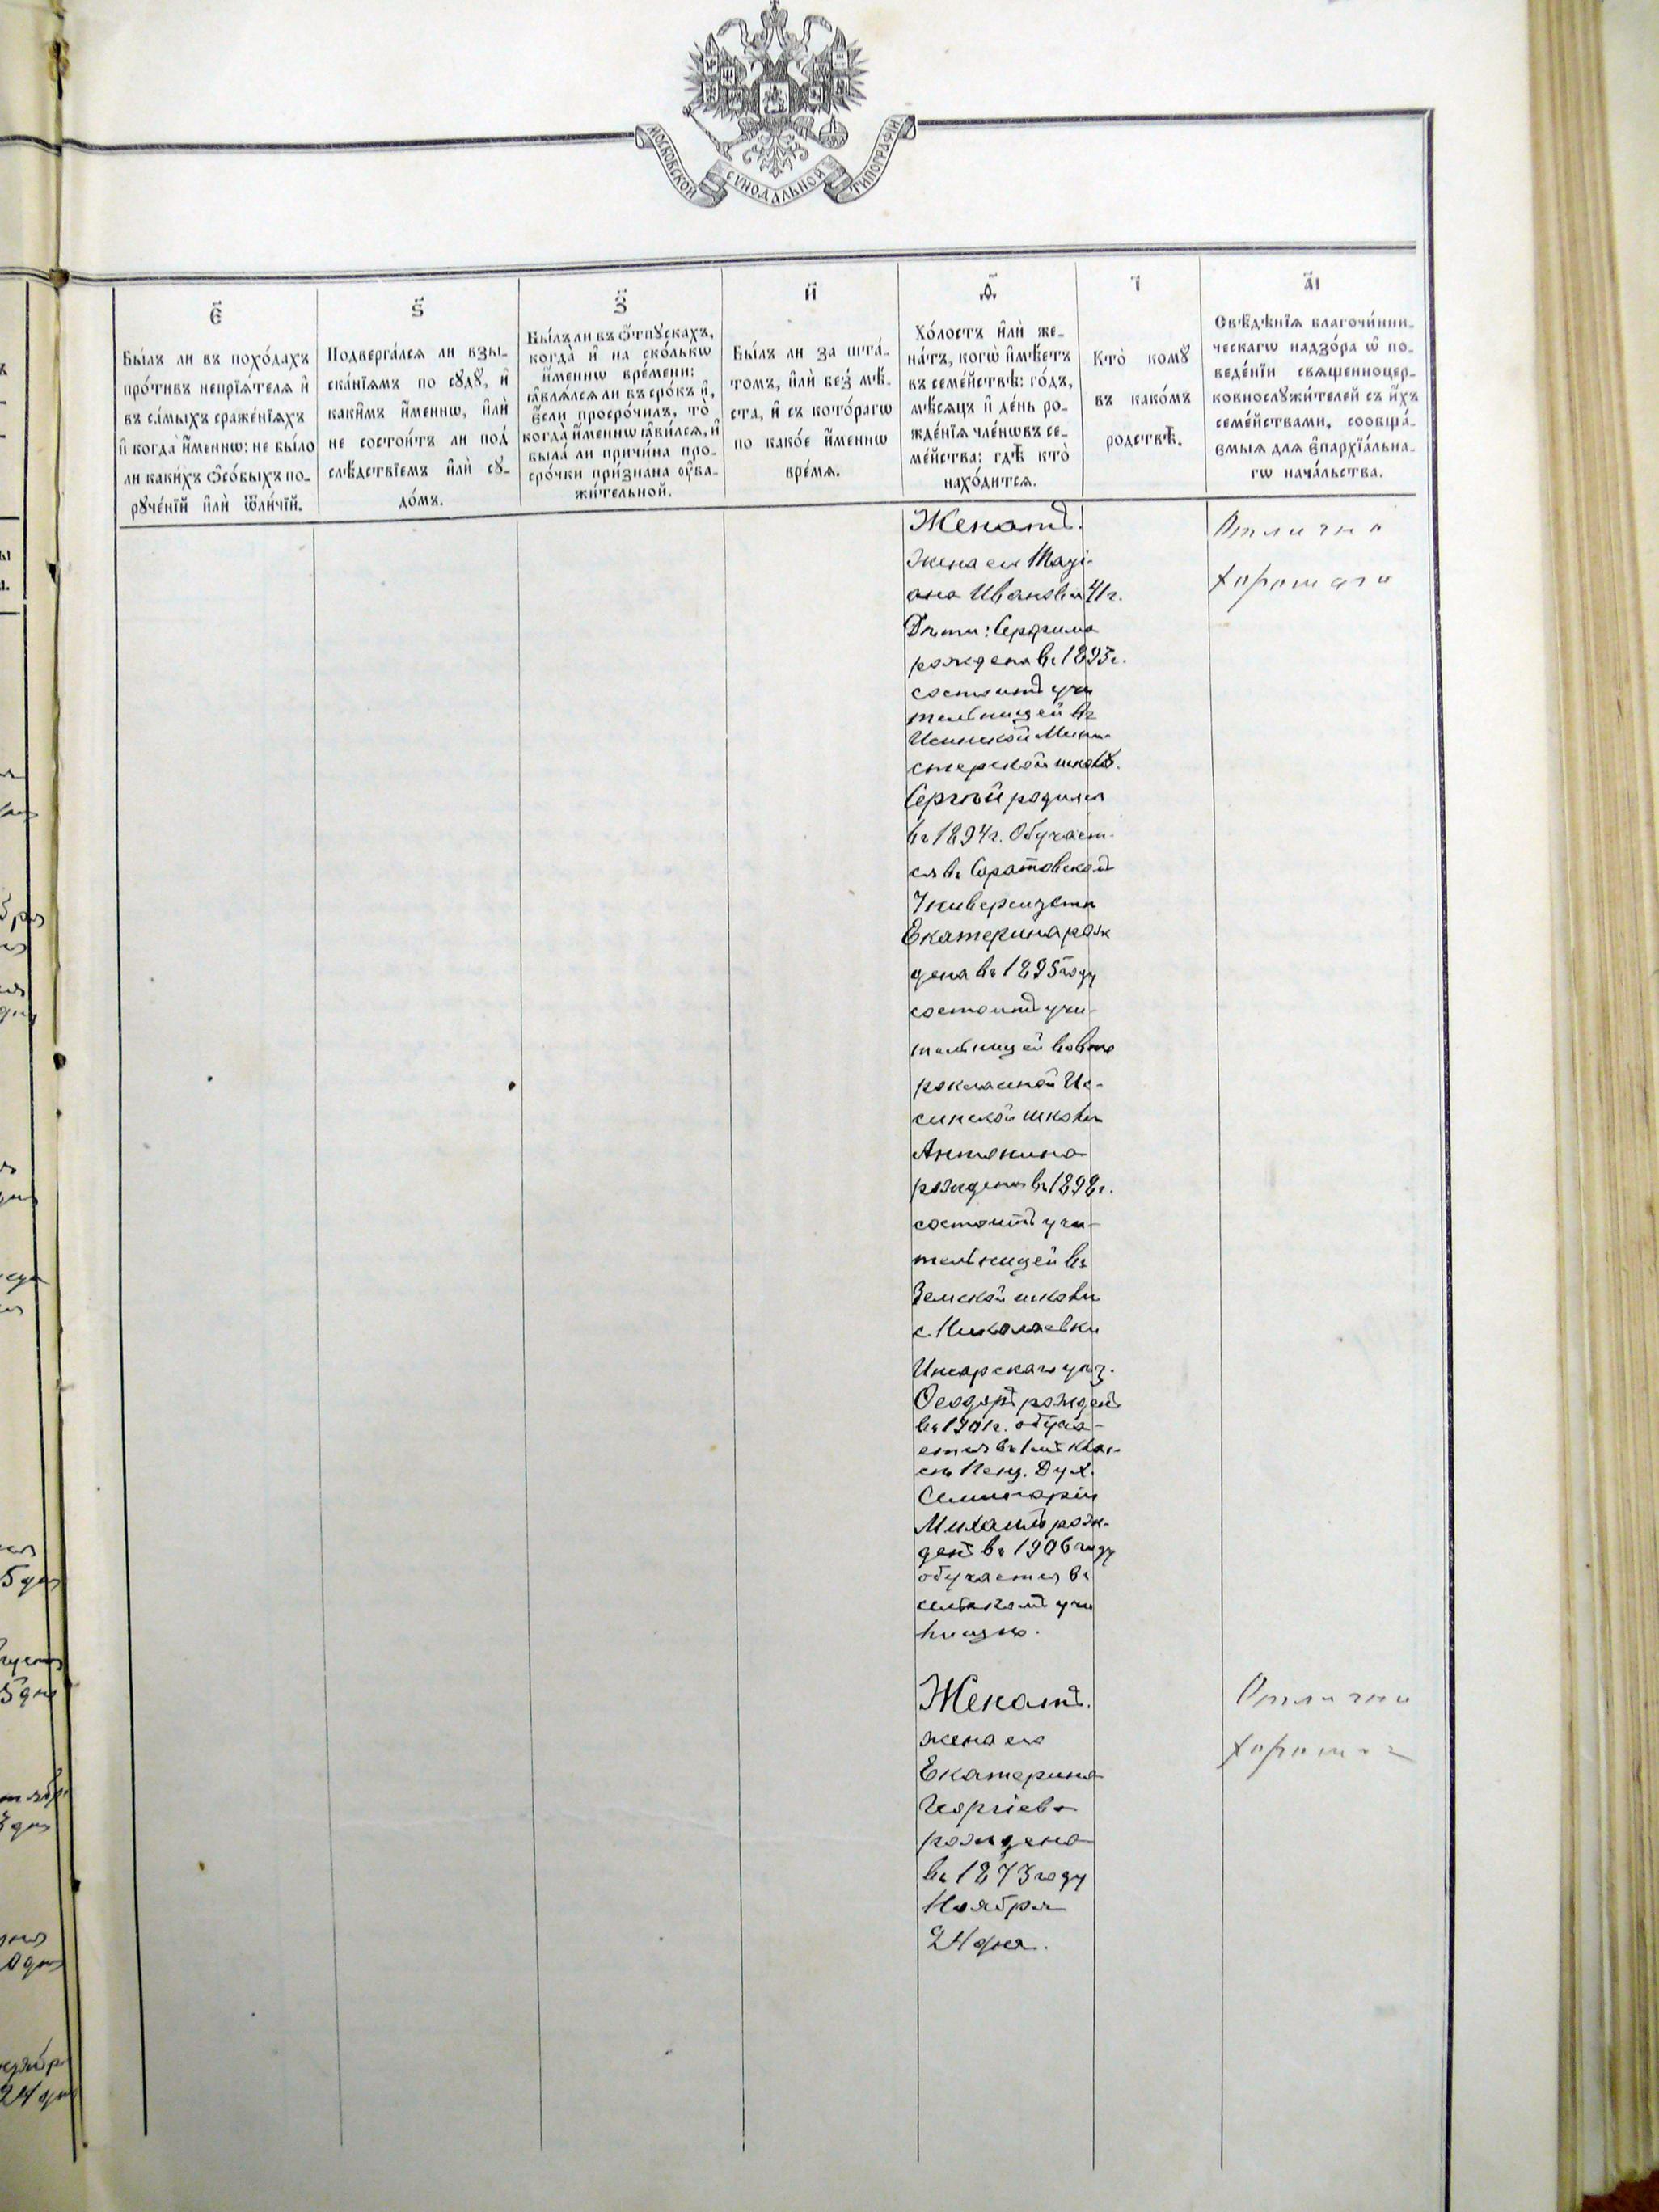 МОСКОВСКОЙ СѴНОДАЛЬНОЙ ТИПОГРАФІИ
є҃
Бы́лъ ли въ похо́дахъ
про́тивъ непрїѧ́телѧ и҆
въ са́мыхъ сраже́нїѧхъ
и҆ когда̀ и҆́меннѡ: не бы́ло
ли каки́хъ ѻ҆со́быхъ по-
рꙋче́нїй и҆лѝ ѿли́чїй.
ѕ҃
Подверга́лсѧ ли взы-
ска́нїѧмъ по сꙋдꙋ̀, и҆
каки̑мъ и҆́меннѡ, и҆лѝ
не состои́тъ ли под̾
слѣ́дствїемъ и҆лѝ сꙋ-
до́мъ.
з҃
Бы́лъ ли въ ѿпꙋскахъ,
когда̀ и҆ на ско́лькѡ
и҆́меннѡ вре́мени:
ꙗ҆влѧ́лсѧ ли въ сро́къ и҆,
є҆́сли просро́чилъ, то̀
когда̀ и҆́меннѡ ꙗ҆ви́лсѧ, и҆
была̀ ли причи́на про-
сро́чки при́знана оу҆ва-
жи́тельной.
и҃
Бы́лъ ли за шта́-
томъ, и҆лѝ без̾ мѣ́-
ста, и҆ съ кото́рагѡ
по како́е и҆́меннѡ
вре́мѧ.
ѳ҃
Хо́лостъ и҆лѝ же-
на́тъ, когѡ̀ и҆мѣ́етъ
въ семе́йствѣ: го́дъ,
мѣ́сѧцъ и҆ де́нь ро-
жде́нїѧ чле́нѡвъ се-
ме́йства: гдѣ̀ кто̀
нахо́дитсѧ.
і҃
Кто̀ комꙋ̀
въ како́мъ
родствѣ̀.
а҃і
Свѣ́дѣнїѧ благочи́нни-
ческагѡ надзо́ра ѡ҆ по-
веде́нїи свѧщенноцер-
ковнослꙋжи́телей съ и҆́хъ
семе́йствами, сообща́-
ємыѧ для є҆парх́їа́льна-
гѡ нача́льства.
Женатъ.
жена его Марі-
ана Иванова 41 г.
Дѣти: Серафима
рождена въ 1893 г.
состоитъ учи
тельницей въ
Иссинской Мини-
стерской школѣ.
Сергѣй родился
въ 1894 г. Обучает-
ся въ Саратовскомъ
Университетѣ
Екатерина рож
дена въ 1895 году
состоитъ учи-
тельницей во вто
роклассной Ис-
синской школѣ
Антонина
рождена въ 1898 г.
состоитъ учи-
тельницей въ
Земской школѣ
с. Николаевки
Инсарскаго уѣз.
Ѳеодоръ рожденъ
въ 1901 г. обуча-
ется въ 1мъ клас-
сѣ Пенз. Дух.
Семинаріи
Михаилъ рож-
денъ въ 1906 году
обучается въ
сельскомъ учи
лищѣ.
Отлично
хорошаго
Женатъ.
жена его
Екатерина
Георгіева
рождена
въ 1873 году
Ноября
24 дня.
Отлично
хорошаго